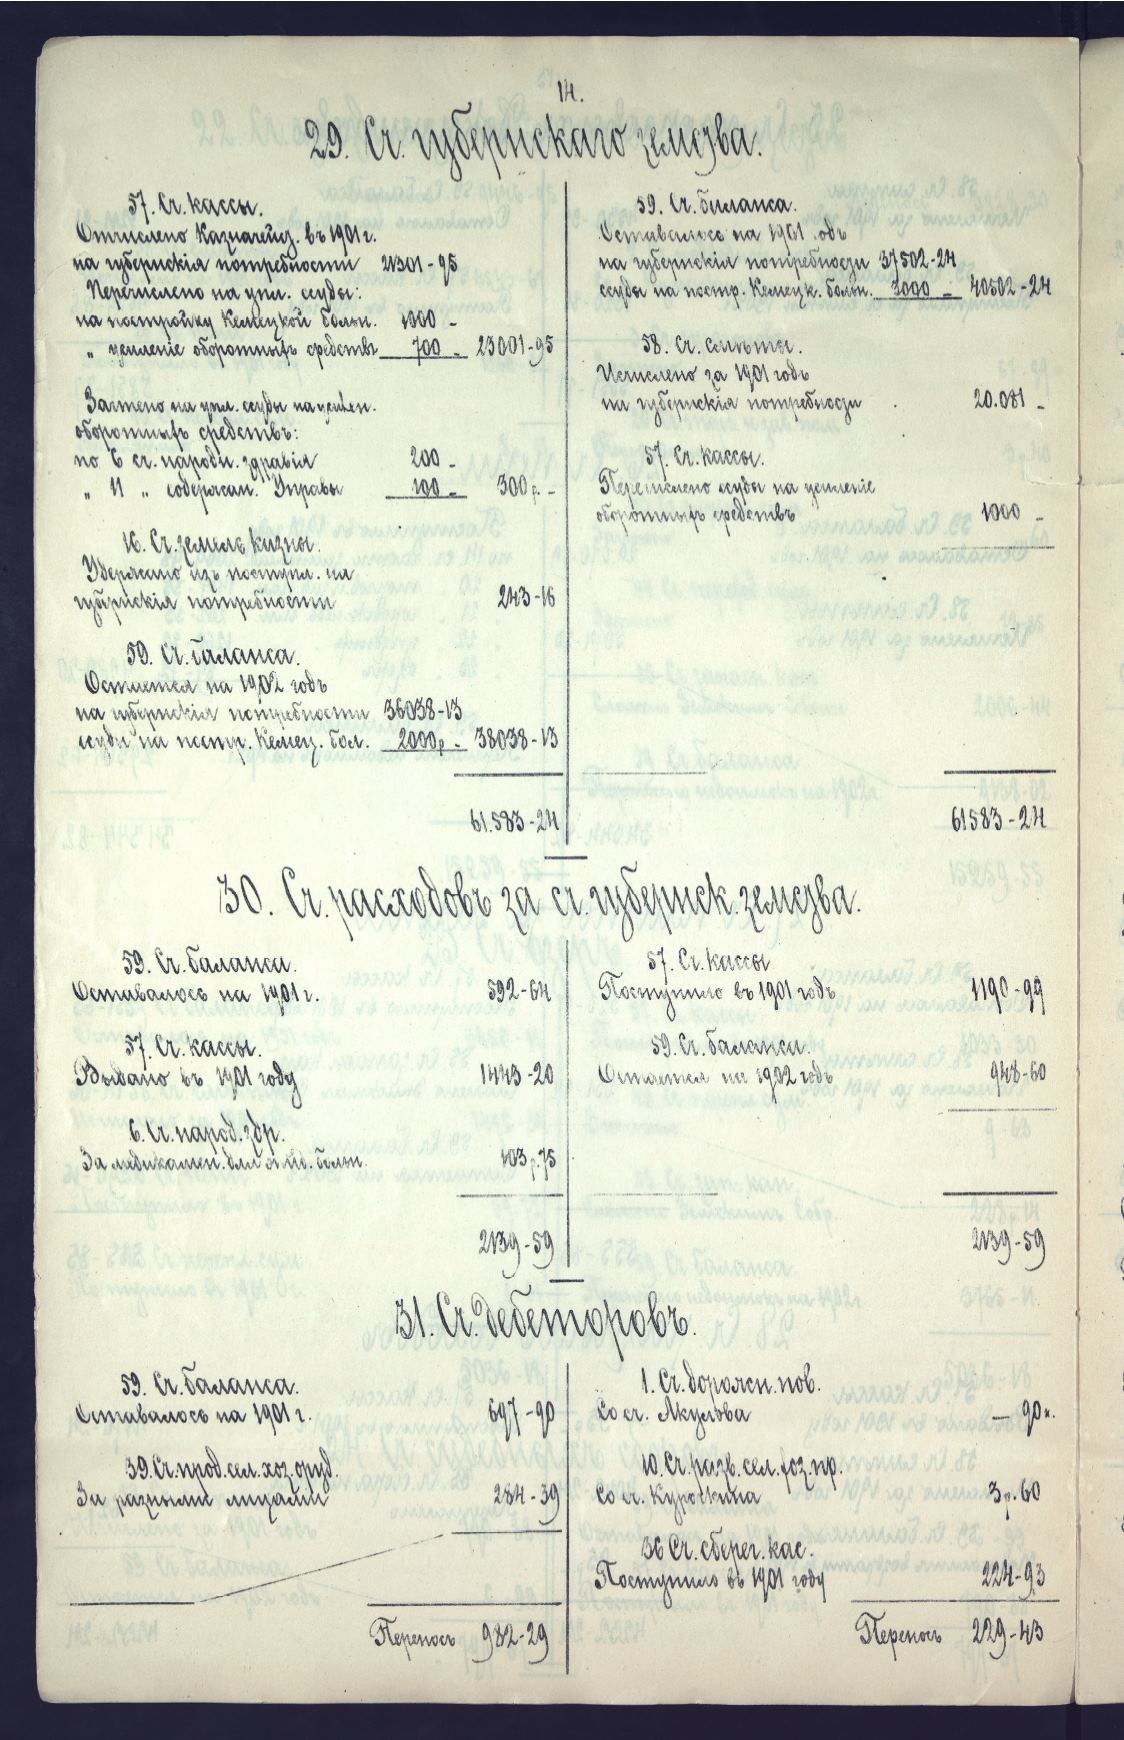 14.
29. Сч. губернскаго земства.
57. Сч. кассы.
Отчислено Казначейст. въ 1901 г.
на губернскія потребности 21301-95
Перечислено на упл. ссуды:
на постройку Кемецкой больн. 1000 -
„ усиленіе оборотныхъ средствъ 700 - 23001-95
Зачтено на упл. ссуды на усилен.
оборотныхъ средствъ:
по 6 сч. народн. здравія 200 -
„ 11 „ содержан. Управы 100 - 300 р. -
16. Сч. земель казны.
Удержано изъ поступл. на
губернскія потребности 243-16
59. Сч. баланса.
Остается на 1902 годъ
на губернскія потребности 36038-13
ссуды на постр. Кемец. бол. 2000 р. - 38038-13
61.583-24
59. Сч. баланса.
Оставалось на 1901 годъ
на губернскія потребности 37502-24
ссуды на постр. Кемецк. больн. 3000 - 40502-24
58. Сч. сметы.
Исчислено за 1901 годъ
на губернскія потребности 20.081 -
57. Сч. кассы.
Перечислено ссуды на усиленіе
оборотныхъ средствъ 1000 -
61583-24
30. Сч. расходовъ за сч. губернск. земства.
59. Сч. баланса.
Оставалось на 1901 г. 592-64
57. Сч. кассы.
Выдано въ 1901 году 1443-20
6. Сч. народ. здр.
За медикамен. для больн. 103 р. 75
2139-59
57. Сч. кассы
Поступило въ 1901 годъ 1190-99
59. Сч. баланса.
Остается на 1902 годъ 948-60
2139-59
31. Сч. Дебеторовъ.
59. Сч. баланса.
Оставалось на 1901 г. 697-90
39. Сч. прод. сел. хоз. оруд.
За разными лицами 284-39
Переносъ 982-29
1. Сч. дорожн. пов.
Со сч. Якулова — 90 к.
10. Сч. разв. сел. хоз. пр.
Со сч. Курочкина 3 р. 60
36 Сч. сберег. кас.
Поступило въ 1901 году 224-93
Переносъ 229-43